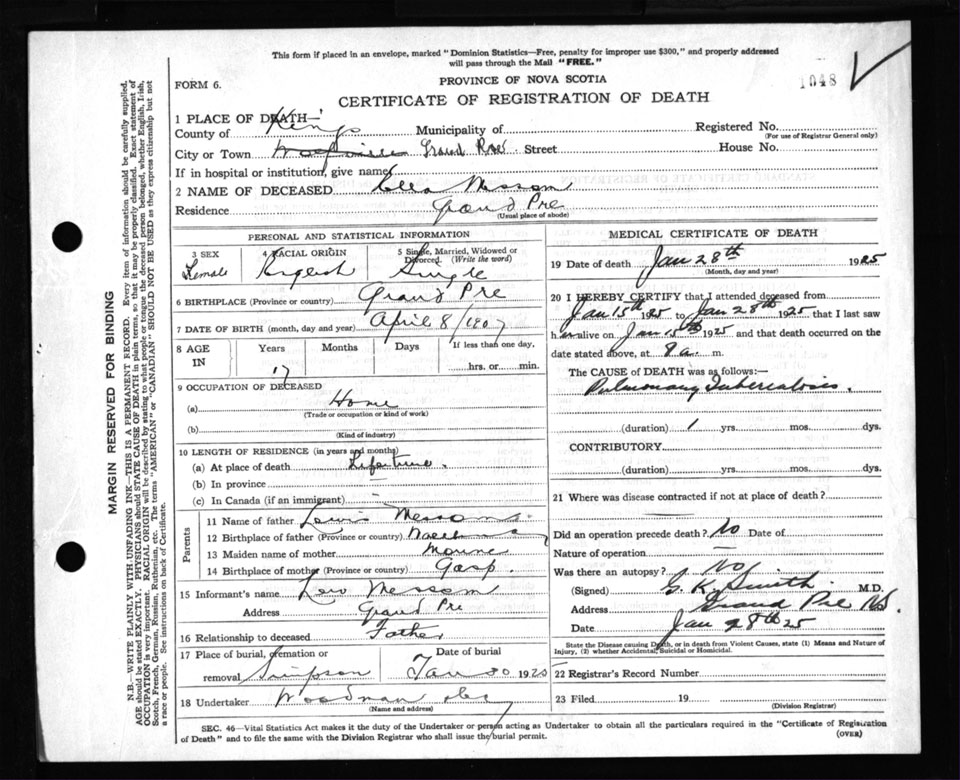 This form if placed in an envelope, marked "Dominion Statistics—Free, penalty for improper use $300," and properly addressed
will pass through the Mail "FREE."
FORM 6.
PROVINCE OF NOVA SCOTIA
1048
CERTIFICATE OF REGISTRATION OF DEATH
1 PLACE OF DEATH—
County of Kings Municipality of Registered No.
(For use of Registrar General only)
City or Town Wolfville Grand Pre Street House No.
If in hospital or institution, give name
2 NAME OF DECEASED Messom
Residence Grand Pre
(Usual place of abode)
PERSONAL AND STATISTICAL INFORMATION
3 SEX Female
4 RACIAL ORIGIN English
5 Single, Married, Widowed or Divorced. (Write the word) Single
6 BIRTHPLACE (Province or country) Grand Pre
7 DATE OF BIRTH (month, day and year) April 8/1907
8 AGE IN Years Months Days If less than one day,
17 hrs. or min.
9 OCCUPATION OF DECEASED
(a) Home
(Trade or occupation or kind of work)
(b)
(Kind of industry)
10 LENGTH OF RESIDENCE (in years and months)
(a) At place of death Lifetime.
(b) In province —
(c) In Canada (if an immigrant) —
Parents
11 Name of father Lewis Messom
12 Birthplace of father (Province or country)
13 Maiden name of mother
14 Birthplace of mother Gasp.
15 Informant's name Lew Messom
Address Grand Pre
16 Relationship to deceased Father
17 Place of burial, cremation or removal Simpson
Date of burial Jan 30 1925
18 Undertaker Woodman
(Name and address)
MEDICAL CERTIFICATE OF DEATH
19 Date of death Jan 28th 1925
(Month, day and year)
20 I HEREBY CERTIFY that I attended deceased from
Jan 15th 1925 to Jan 28th 1925 that I last saw
her alive on Jan 15th 1925 and that death occurred on the
date stated above, at 9 a. m.
The CAUSE of DEATH was as follows:—
Pulmonary Tuberculosis.
(duration) 1 yrs. mos. dys.
CONTRIBUTORY
(duration) yrs. mos. dys.
21 Where was disease contracted if not at place of death?
—
Did an operation precede death? No Date of
Nature of operation —
Was there an autopsy? No
(Signed) G. K. Smith M.D.
Address Grand Pre N.S.
Date Jan 28th 25
State the Disease causing Death, or in death from Violent Causes, state (1) Means and Nature of
Injury, (2) whether Accidental, Suicidal or Homicidal.
22 Registrar's Record Number
23 Filed 19
(Division Registrar)
SEC. 46—Vital Statistics Act makes it the duty of the Undertaker or person acting as Undertaker to obtain all the particulars required in the "Certificate of Registration
of Death" and to file the same with the Division Registrar who shall issue the burial permit.
(OVER)
MARGIN RESERVED FOR BINDING
N.B.—WRITE PLAINLY WITH UNFADING INK—THIS IS A PERMANENT RECORD. Every item of information should be carefully supplied.
AGE should be stated EXACTLY. PHYSICIANS should STATE CAUSE OF DEATH in plain terms, so that it may be properly classified. Exact statement of
OCCUPATION is very important. RACIAL ORIGIN will be described by stating to what people or tongue the deceased person belonged, whether English, Irish,
Scotch, French, German, Russian, Ruthenian, etc. The terms "AMERICAN" or "CANADIAN" SHOULD NOT BE USED as they express citizenship but not
a race or people. See instructions on back of Certificate.